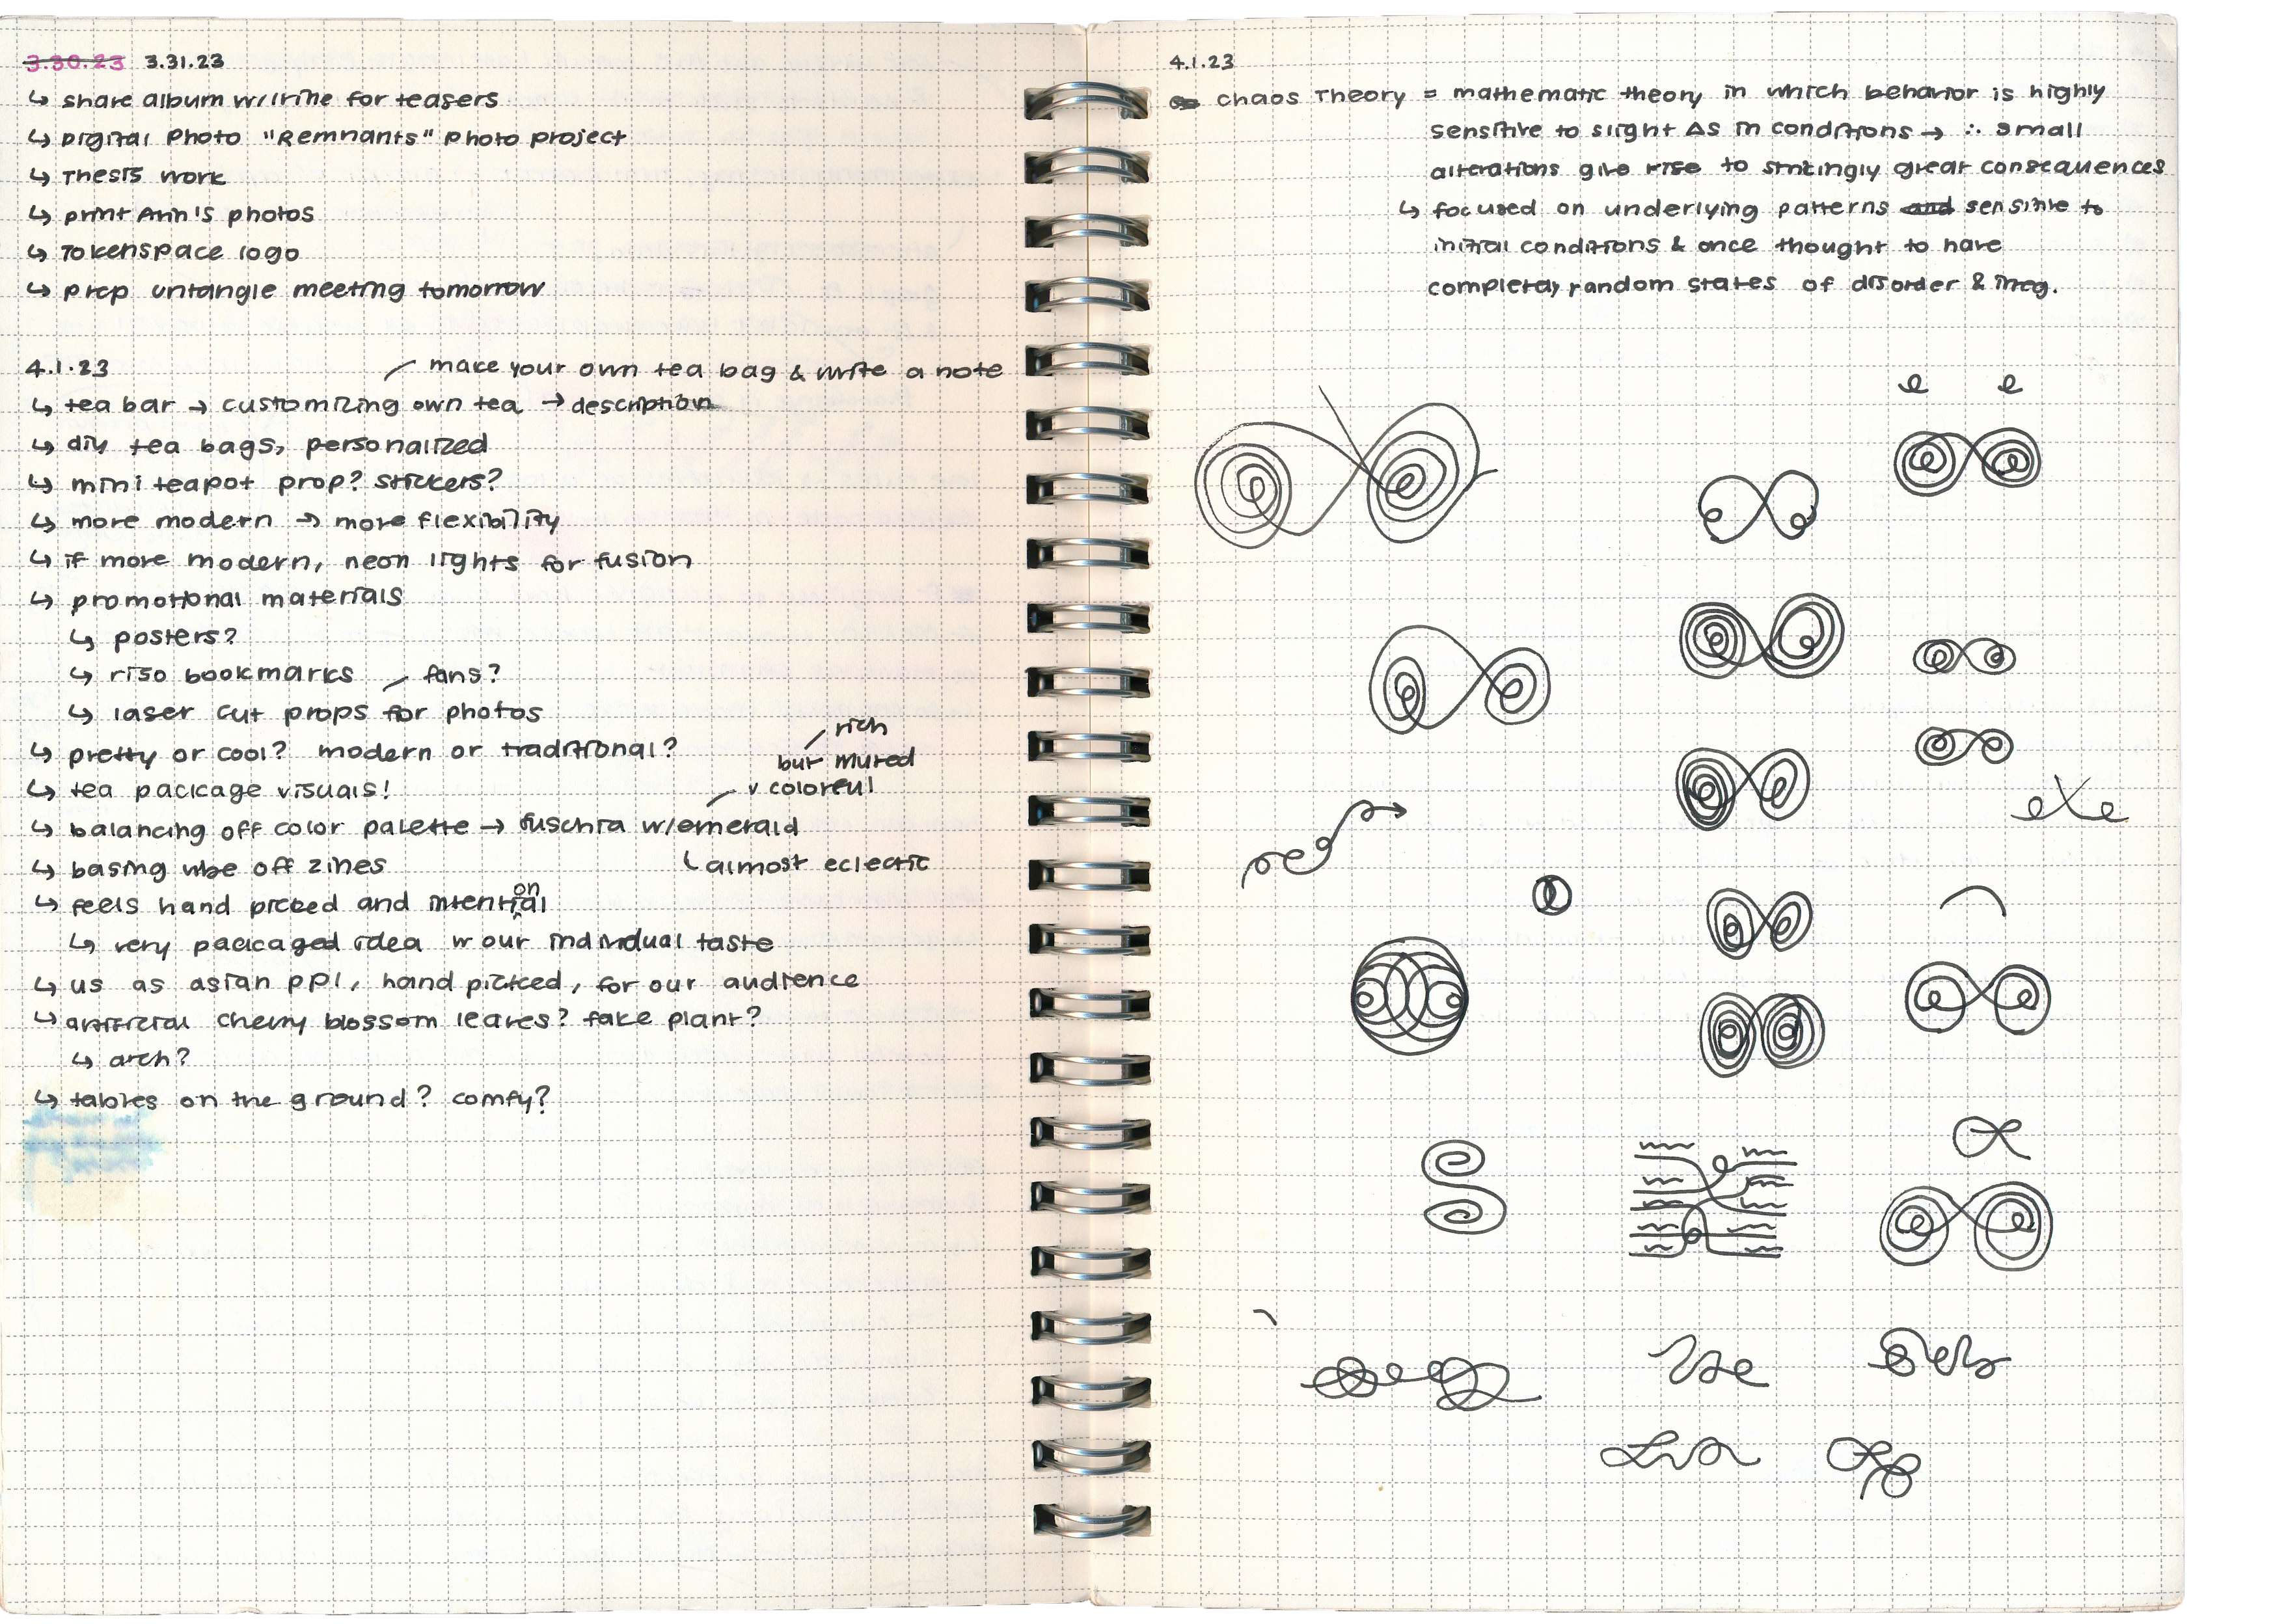 3.30.23 3.31.23
↳ share album w/ Irine for teasers
↳ Digital Photo "Remnants" Photo project
↳ Thesis work
↳ print Ann's photos
↳ Tokenspace logo
↳ prep untangle meeting tomorrow
4.1.23
make your own tea bag & write a note
↳ tea bar → customizing own tea → description
↳ diy tea bags, personalized
↳ mini teapot prop? stickers?
↳ more modern → more flexibility
↳ if more modern, neon lights for fusion
↳ promotional materials
↳ posters?
↳ riso bookmarks
fans?
↳ laser cut props for photos
↳ pretty or cool? modern or traditional?
rich
but muted
↳ tea package visuals!
v coloreul
↳ balancing off color palette → fuschia w/ emerald
↳ basing vibe off zines
almost eclectic
↳ feels hand picked and intentional
↳ very packaged idea w our individual taste
↳ us as asian ppl, hand picked, for our audience
↳ artificial cherry blossom leaves? fake plant?
↳ arch?
↳ tables on the ground? comfy?
4.1.23
Chaos Theory = mathematic theory in which behavior is highly
sensitive to slight Δs in conditions → ∴ small
alterations give rise to strikingly great consequences
↳ focused on underlying patterns and sensitive to
initial conditions & once thought to have
completely random states of disorder & irreg.